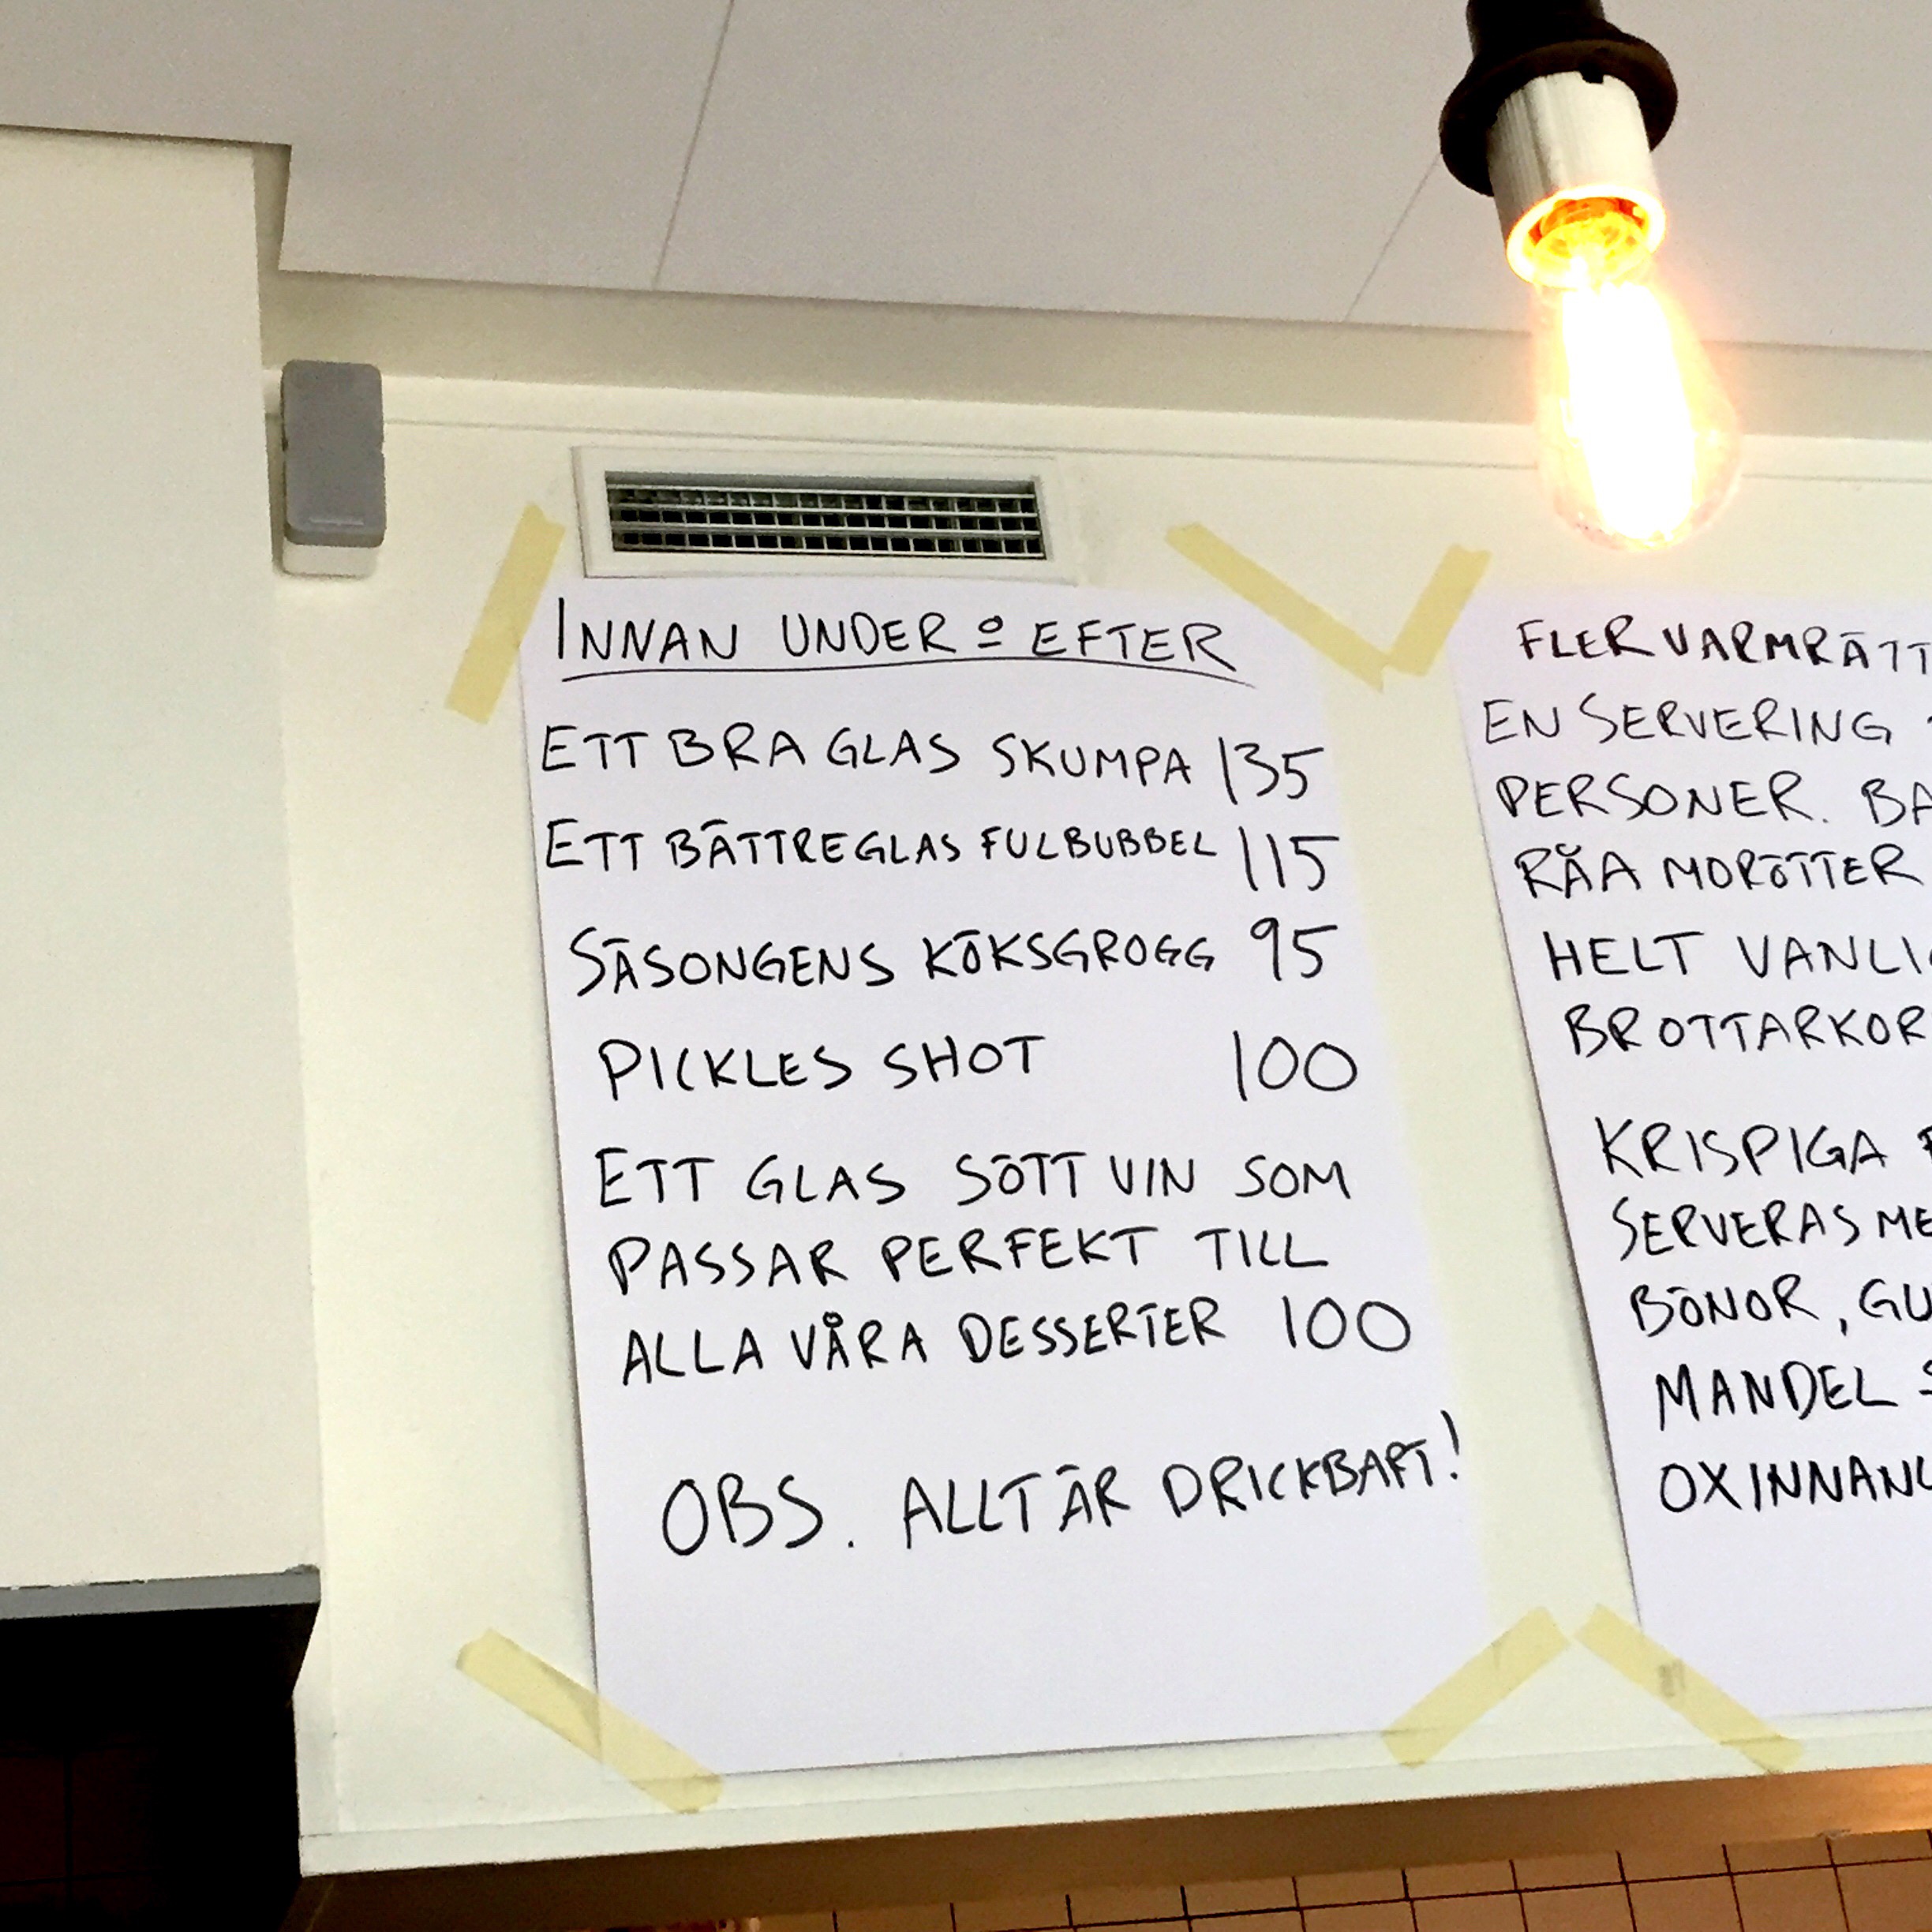 INNAN UNDER O EFTER
ETT BRA GLAS SKUMPA 135
ETT BÄTTRE GLAS FULBUBBEL 115
SÄSONGENS KÖKSGROGG 95
PICKLES SHOT 100
ETT GLAS SÖTT VIN SOM
PASSAR PERFEKT TILL
ALLA VÅRA DESSERTER 100
OBS. ALLT ÄR DRICKBART!
FLER VARMRÄTT
EN SERVERING
PERSONER. BA
RÅA MORÖTTER
HELT VANLIG
BROTTARKOR
KRISPIGA
SERVERAS ME
BÖNOR, GU
MANDEL
OXINNANL